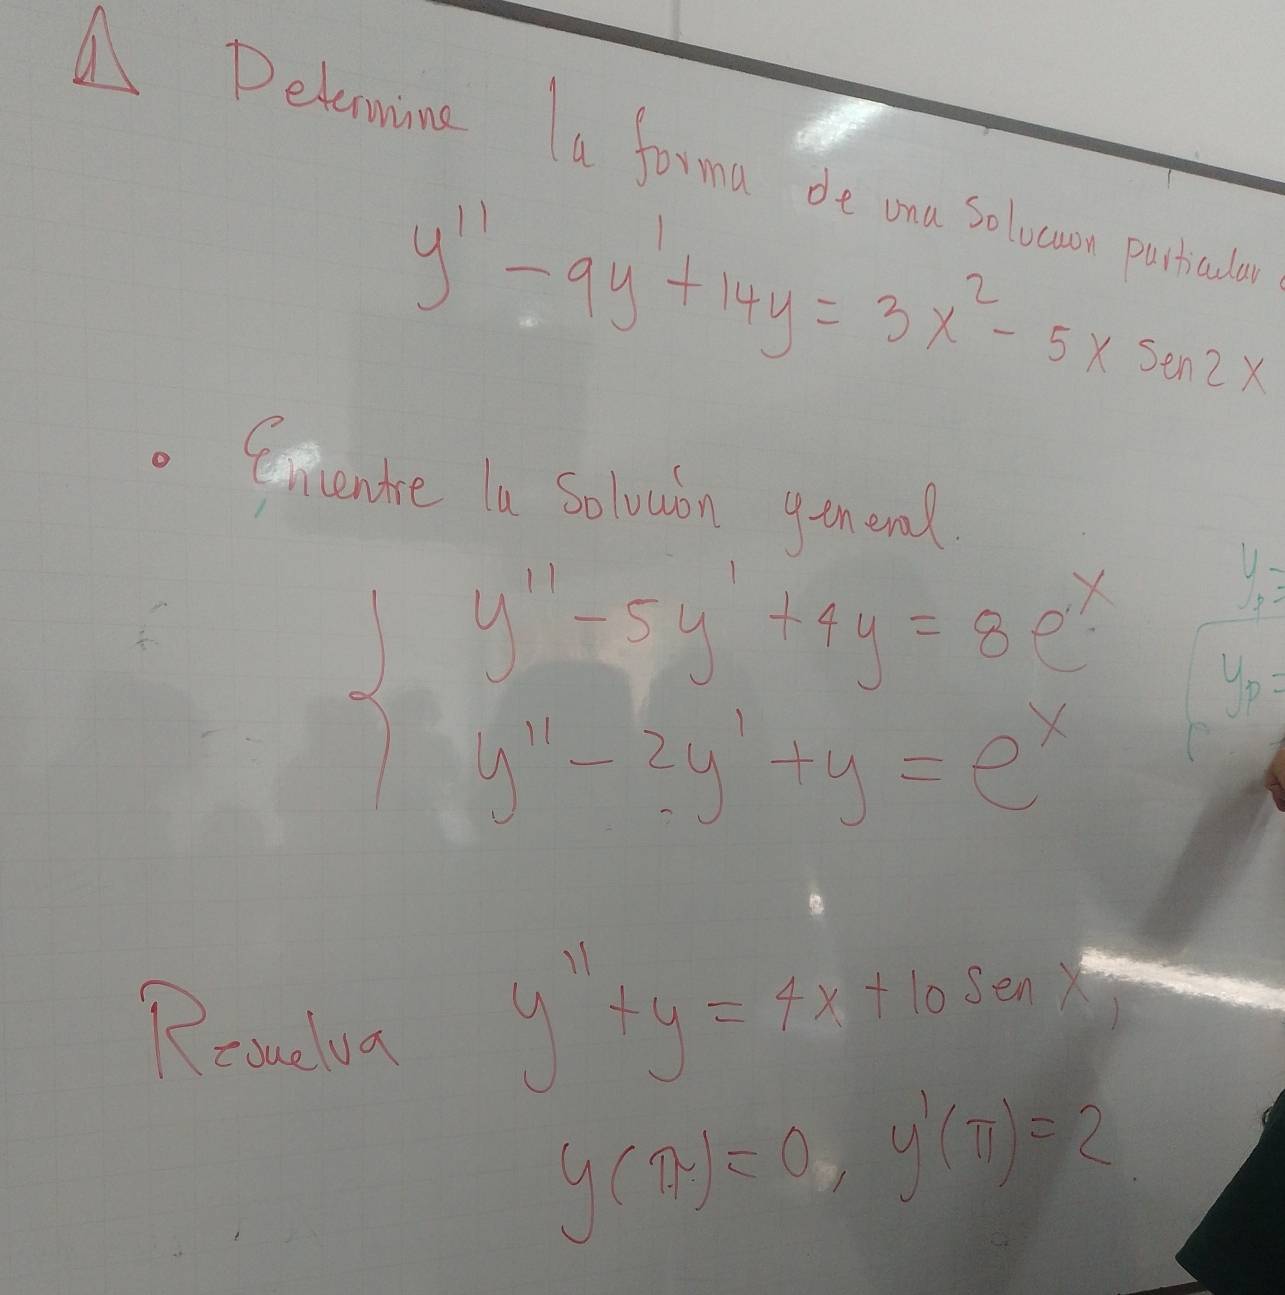 1 Determine la forma de una Solucion particular
y'' - 9y' + 14y = 3x² - 5x Sen 2x
• Encuentre la Solución general.
y'' - 5y' + 4y = 8e^x
y'' - 2y' + y = e^x
yp =
yp =
Resuelva y'' + y = 4x + 10 Sen x,
y(π) = 0, y'(π) = 2.